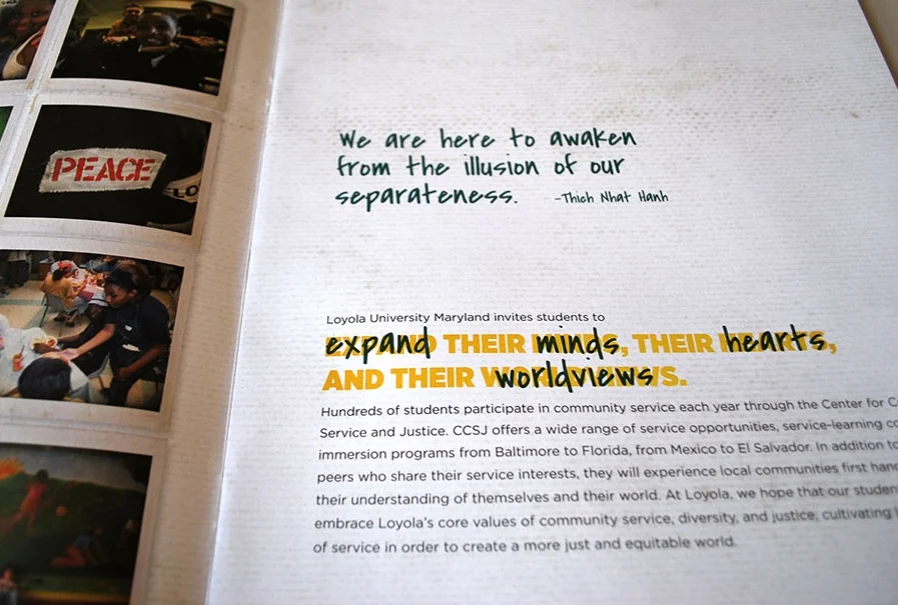 PEACE
LO
We are here to awaken
from the illusion of our
separateness. -Thich Nhat Hanh
Loyola University Maryland invites students to
expand THEIR minds, THEIR hearts,
AND THEIR worldviews.
Hundreds of students participate in community service each year through the Center for
Service and Justice. CCSJ offers a wide range of service opportunities, service-learning
immersion programs from Baltimore to Florida, from Mexico to El Salvador. In addition to
peers who share their service interests, they will experience local communities first
their understanding of themselves and their world. At Loyola, we hope that our
embrace Loyola's core values of community service, diversity, and justice, cultivating
of service in order to create a more just and equitable world.